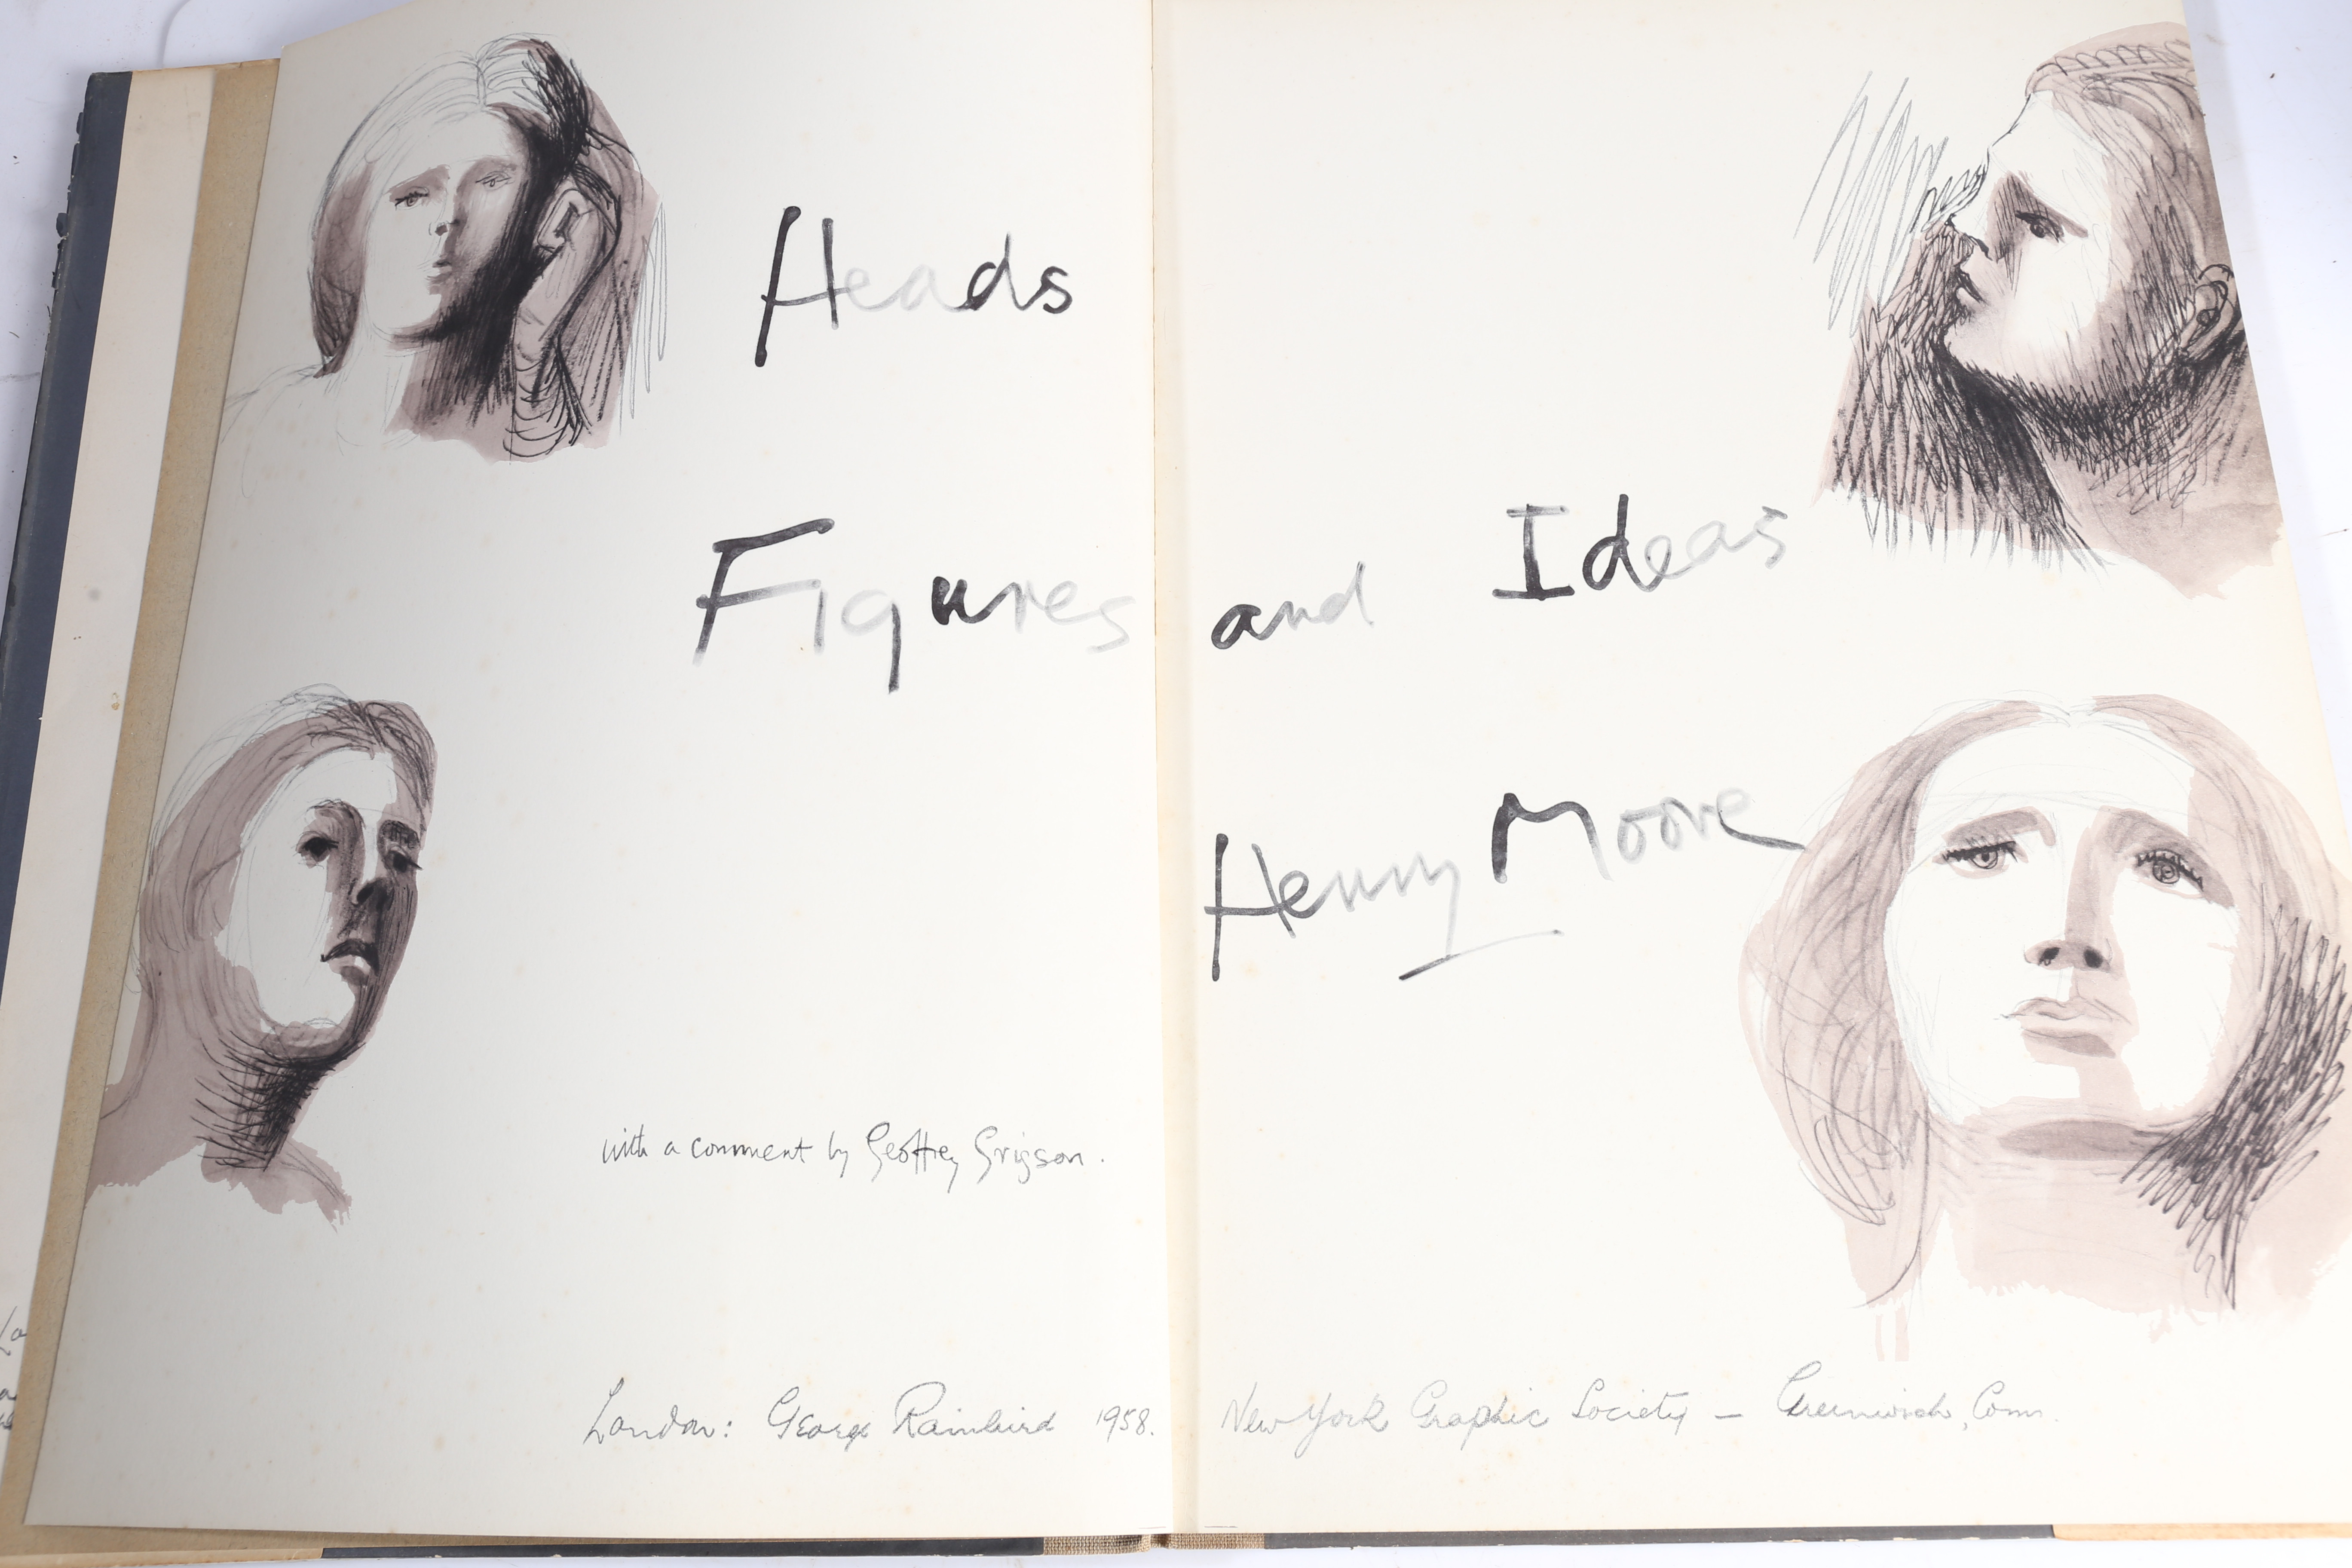 Heads
Figures and Ideas
Henry Moore
with a comment by Geoffrey Grigson.
London: George Rainbird 1958. New York Graphic Society – Greenwich, Conn.